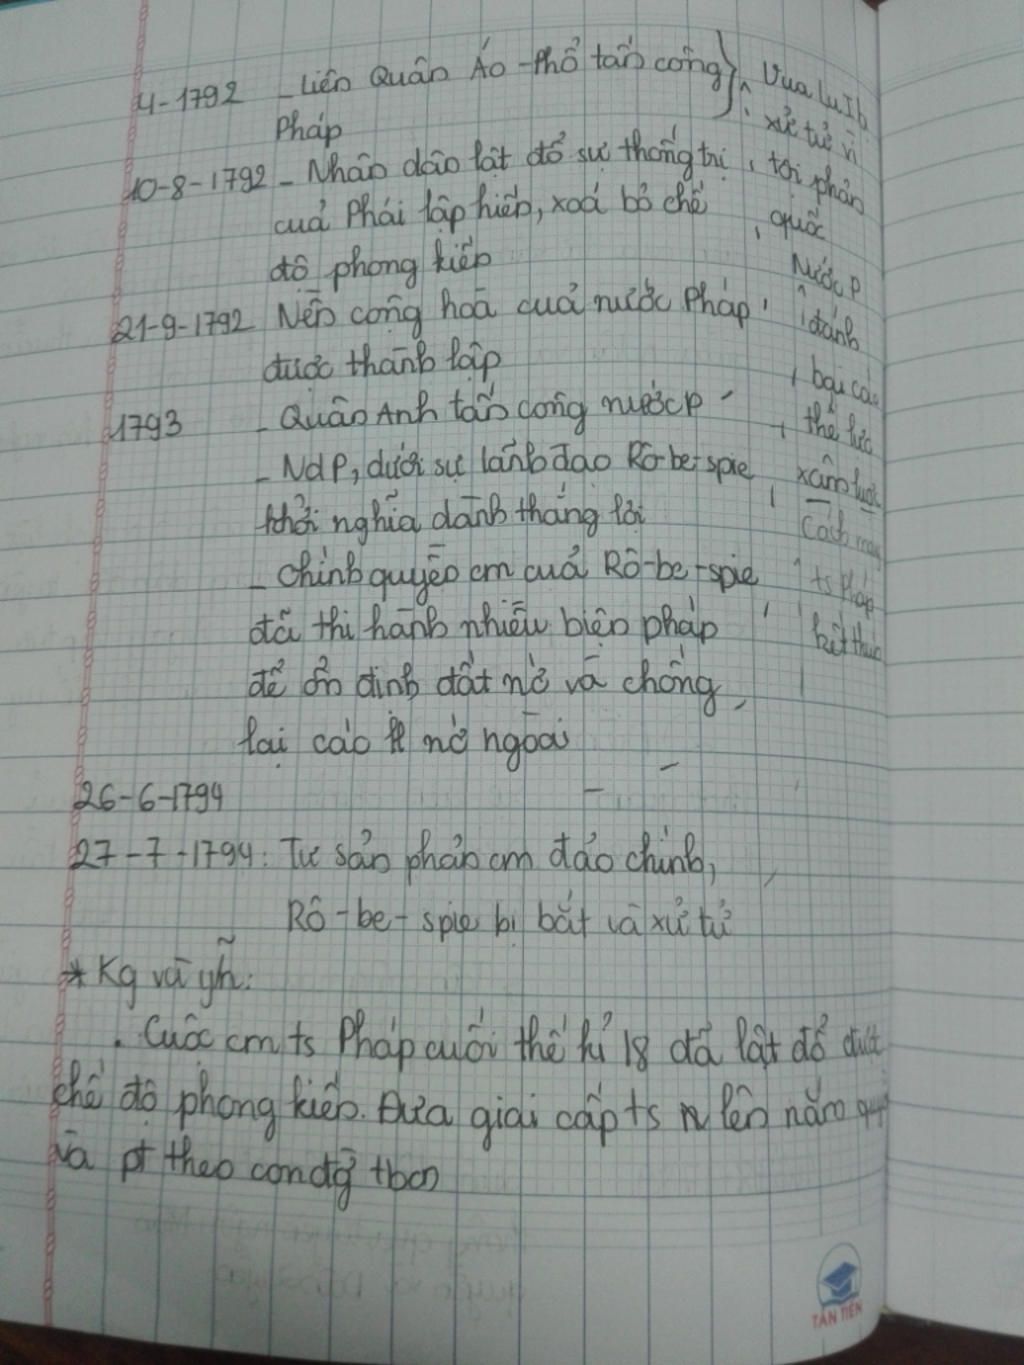 4-1792 - Liên Quân Áo - Phổ tấn công
Pháp
10-8-1792 - Nhân dân lật đổ sự thống trị
cuả Phái lập hiến, xoá bỏ chế
độ phong kiến
21-9-1792 Nền cộng hoà cuả nước Pháp
được thành lập
1793 - Quân Anh tấn công nước P
- NdP, dưới sự lãnh đạo Rô-be-spie
khởi nghĩa dành thắng lợi
- Chính quyền cm cuả Rô-be-spie
đã thi hành nhiều biện pháp
để ổn định đất nớ và chống
lại các nớ ngoài
26-6-1794
27-7-1794: Tư sản phản cm đảo chính,
Rô-be-spie bị bắt và xử tử
* Kq và ýn:
. Cuộc cm ts Pháp cuối thế kỉ 18 đã lật đổ được
chế độ phong kiến. Đưa giai cấp ts lên nắm
và pt theo con đg tbcn
Vua Lu I
xử tử vì
tội phản
quốc
Nước P
đánh
bại các
thế lực
xâm lược
Cách mạng
ts Pháp
kết thúc
TÂN TIẾN